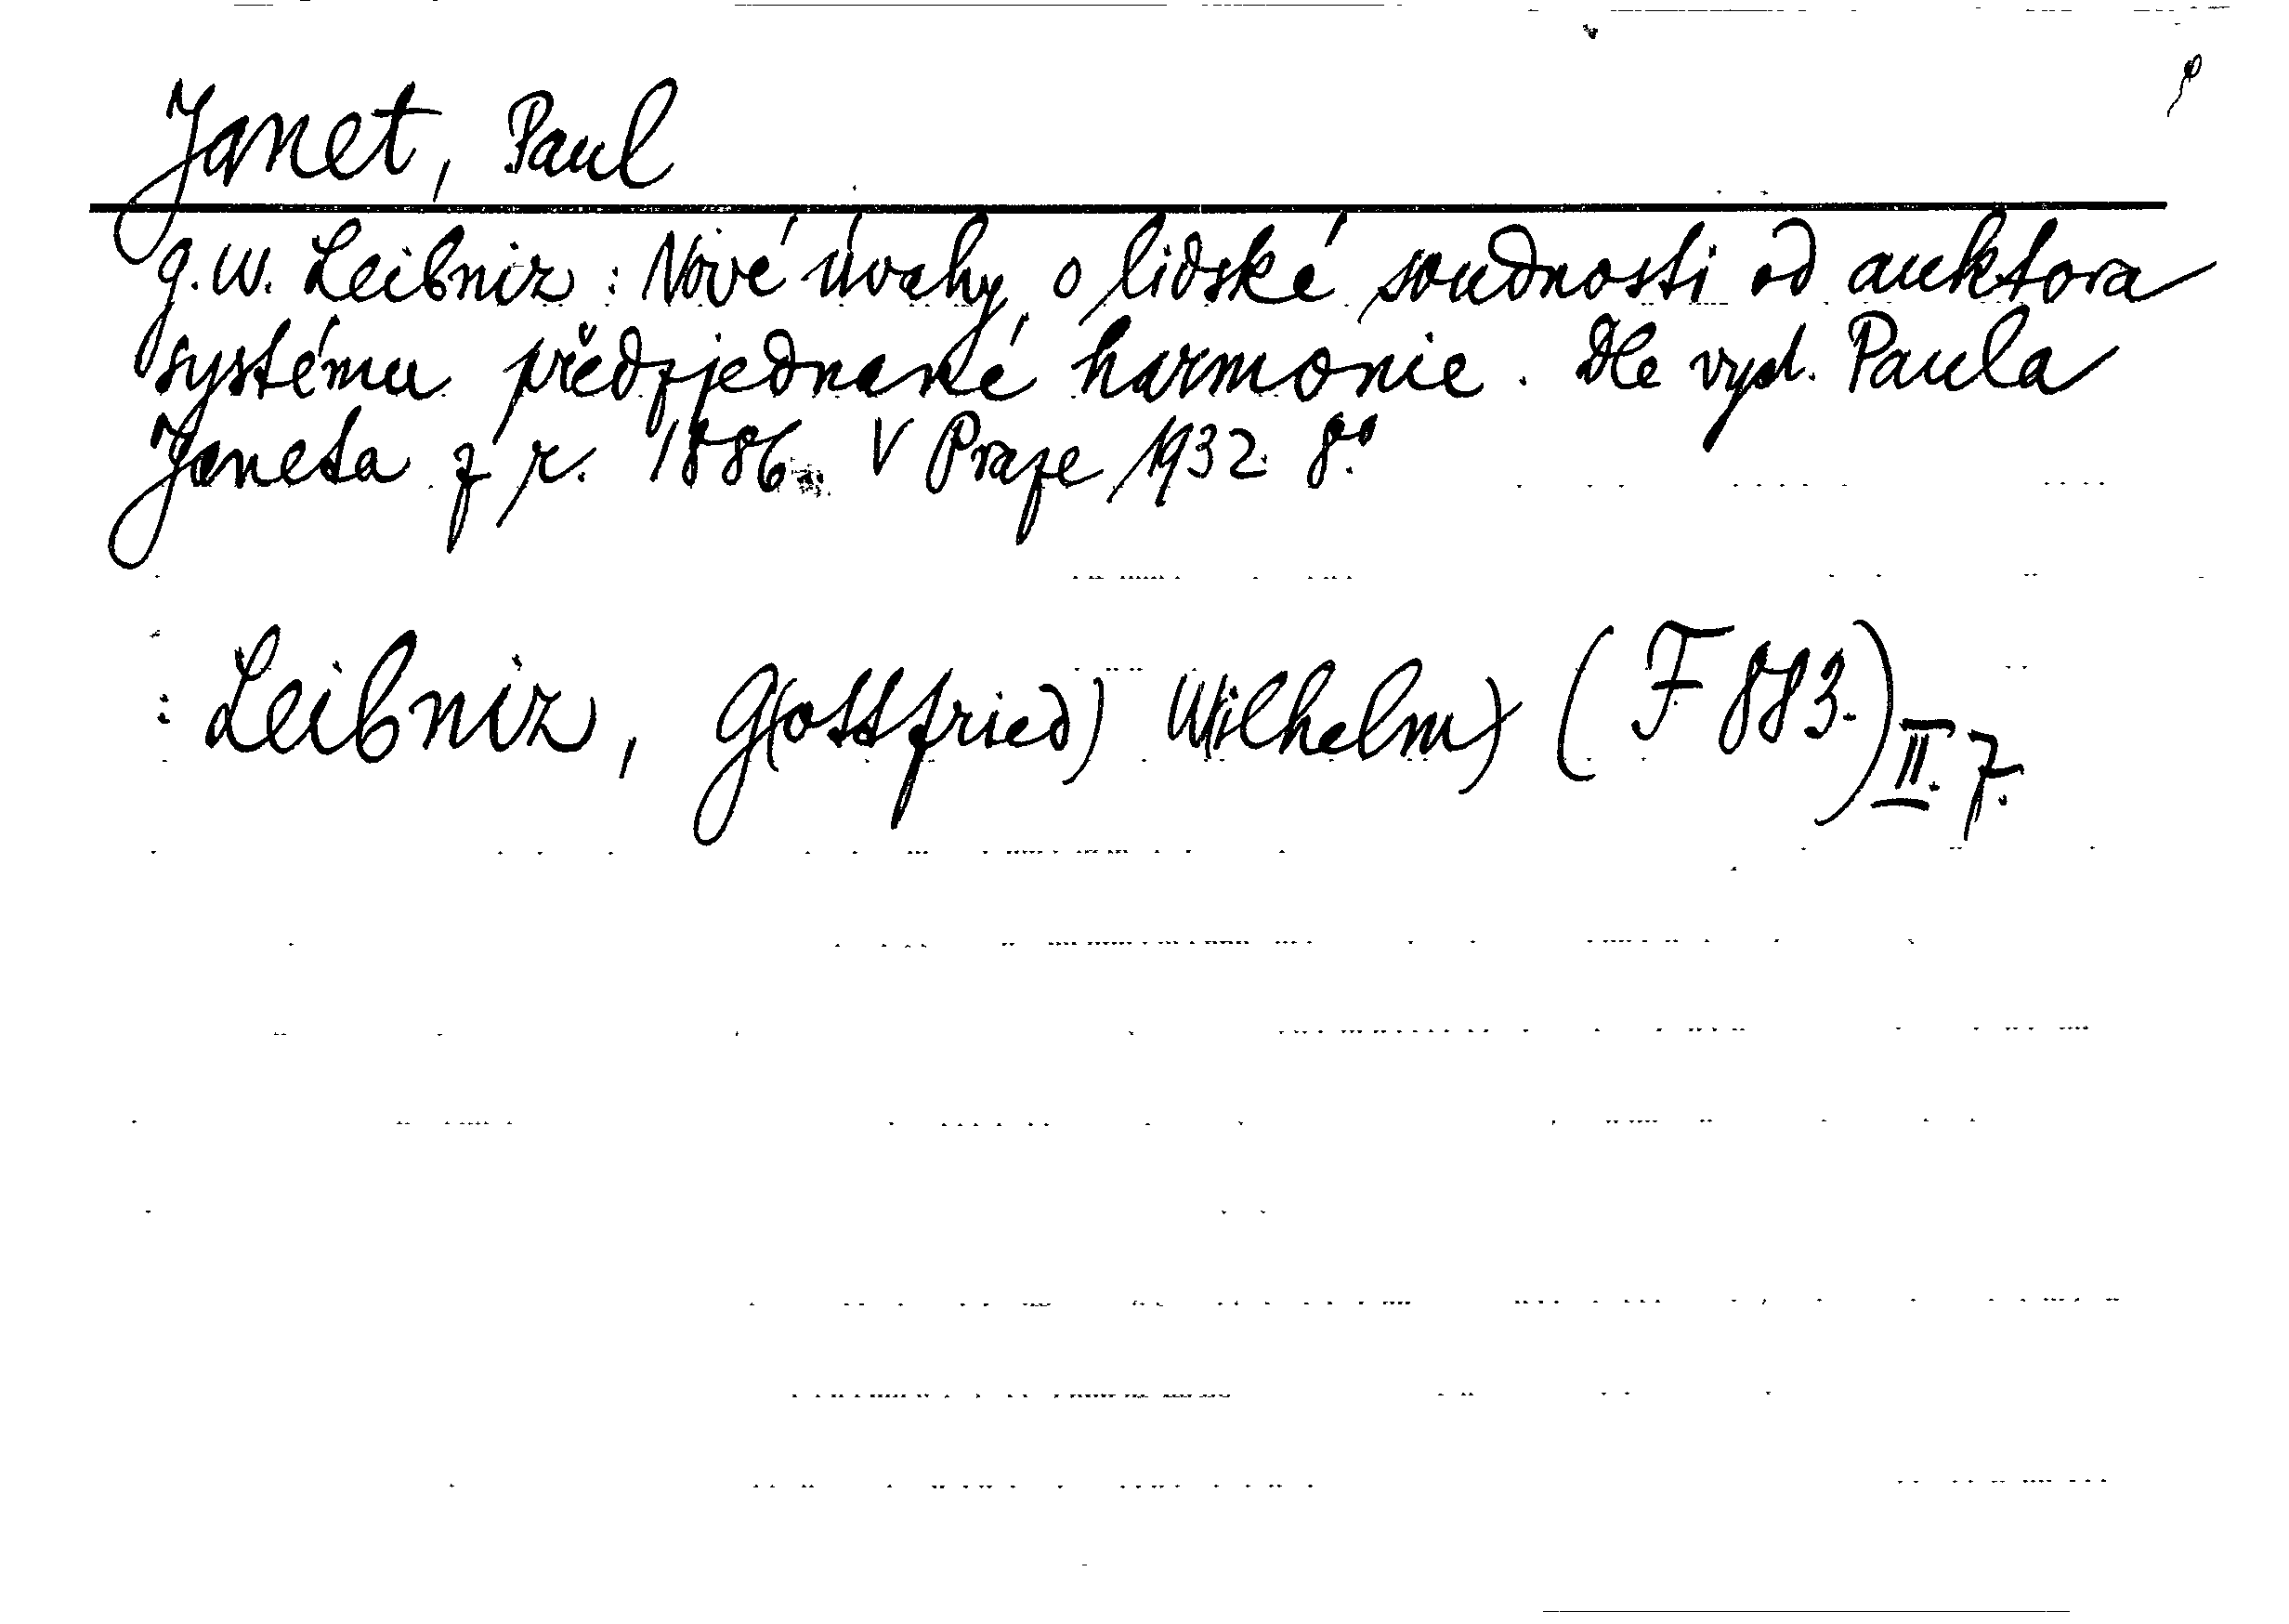 Janet, Paul
G. W. Leibniz: Nové úvahy o lidské soudnosti od auktora
systému předzjednané harmonie. Dle vyd. Paula
Janeta z r. 1886. V Praze 1932. 8.°
Leibniz, G(ottfried) W(ilhelm) (F 883.) II. 7.